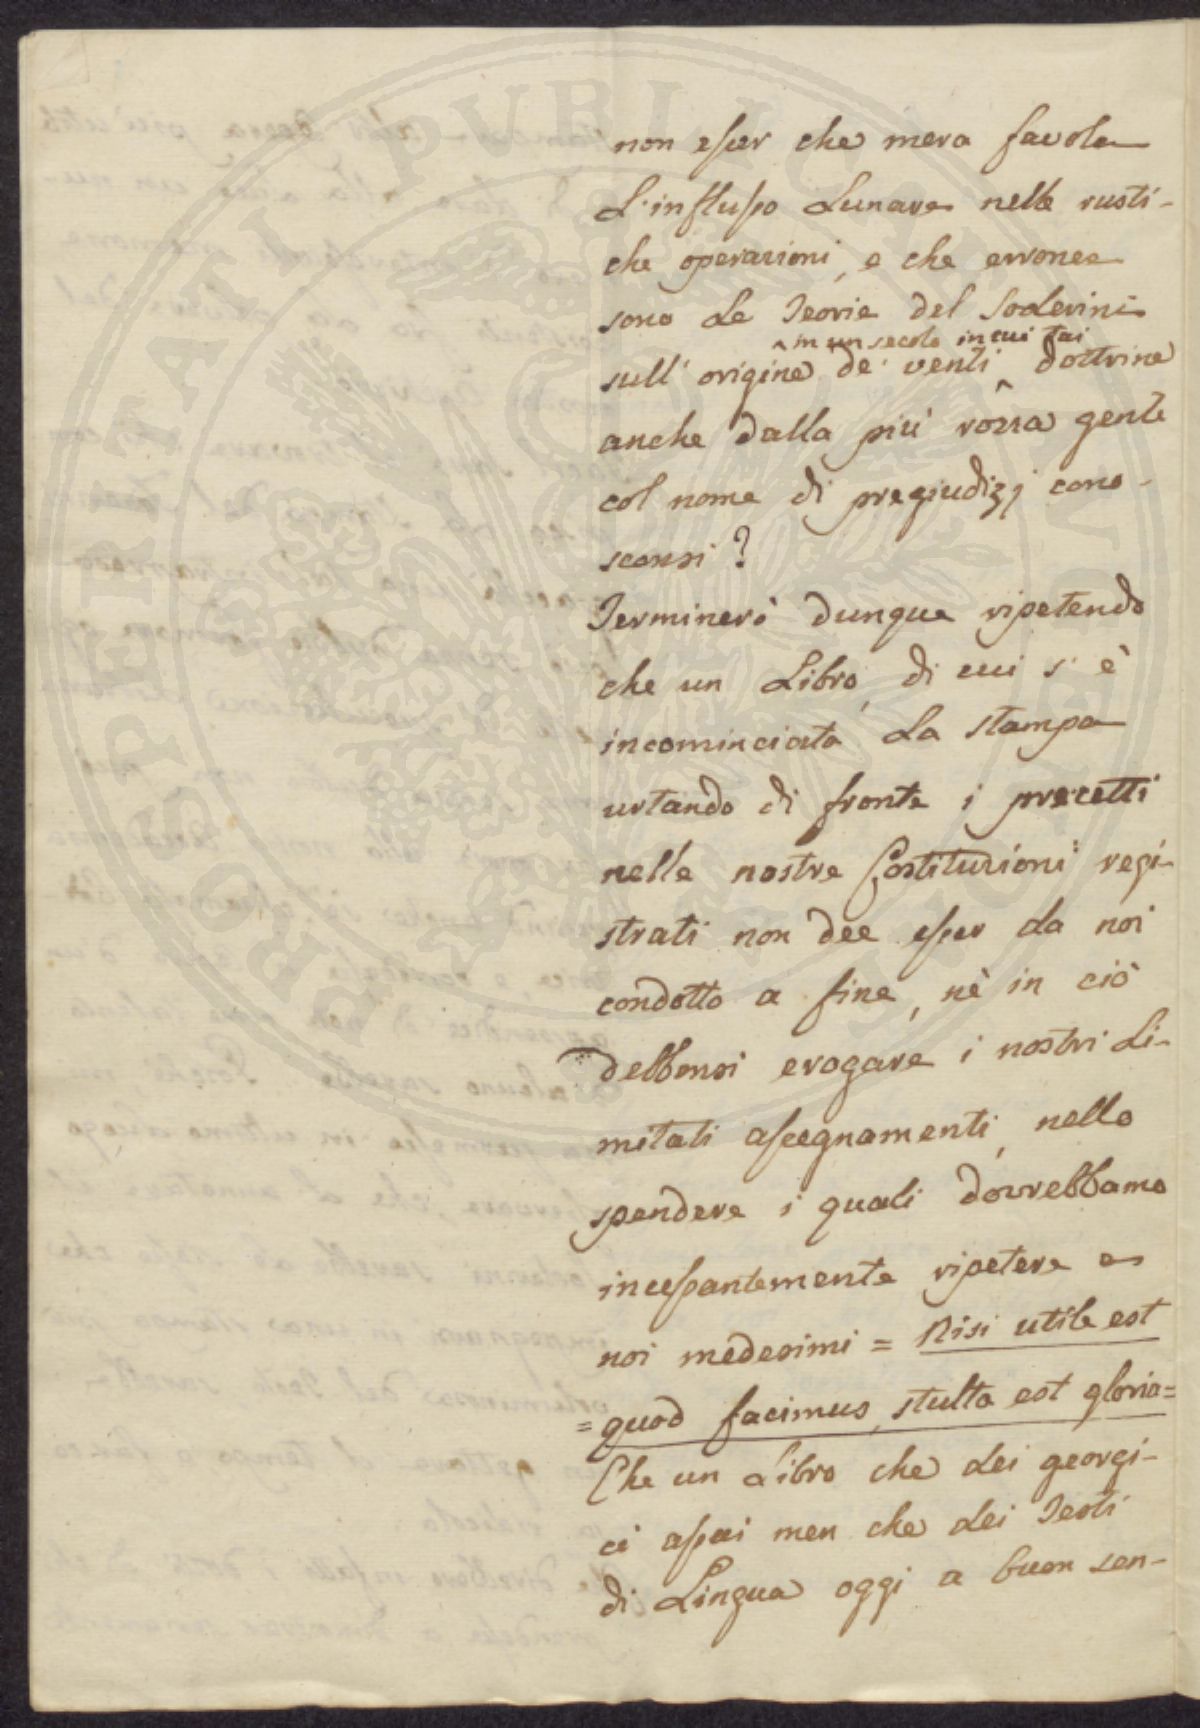 PROSPERITATI PUBLICAE AUGENDAE
non esser che mera favola
L'influsso Lunare nelle rusti-
che operazioni, e che erronee
sono Le Teorie del Soderini
^ in un secolo in cui tai
sull' origine de' venti ^ dottrine
anche dalla più rozza gente
col nome di pregiudizj cono-
sconsi?
Terminerò dunque ripetendo
che un Libro, di cui s' è
incominciata La stampa
urtando di fronte i precetti
nelle nostre Costituzioni regi-
strati non dee esser da noi
condotto a fine, nè in ciò
debbonsi erogare i nostri Li-
mitati assegnamenti, nello
spendere i quali dovrebbamo
incessantemente ripetere a
noi medesimi = Nisi utile est
= quod facimus, stulta est gloria =
Che un Libro che dei georgi-
ci assai men che dei Testi
di Lingua oggi a buon sen-